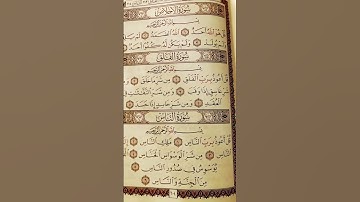 سُورَةُ الإِخْلَاصِ
بِسْمِ اللَّهِ الرَّحْمَٰنِ الرَّحِيمِ
هُوَ اللَّهُ أَحَدٌ ۝ اللَّهُ الصَّمَدُ ۝ لَمْ يَلِدْ
وَلَمْ يُولَدْ ۝ وَلَمْ يَكُن لَّهُ كُفُوًا أَحَدٌ
سُورَةُ الفَلَقِ
بِسْمِ اللَّهِ الرَّحْمَٰنِ الرَّحِيمِ
قُلْ أَعُوذُ بِرَبِّ الْفَلَقِ ۝ مِن شَرِّ مَا خَلَقَ
شَرِّ غَاسِقٍ إِذَا وَقَبَ ۝ وَمِن شَرِّ النَّفَّاثَاتِ فِي
الْعُقَدِ ۝ وَمِن شَرِّ حَاسِدٍ إِذَا حَسَدَ
سُورَةُ النَّاسِ
بِسْمِ اللَّهِ الرَّحْمَٰنِ الرَّحِيمِ
قُلْ أَعُوذُ بِرَبِّ النَّاسِ ۝ مَلِكِ النَّاسِ
النَّاسِ ۝ مِن شَرِّ الْوَسْوَاسِ الْخَنَّاسِ
يُوَسْوِسُ فِي صُدُورِ النَّاسِ
مِنَ الْجِنَّةِ وَالنَّاسِ